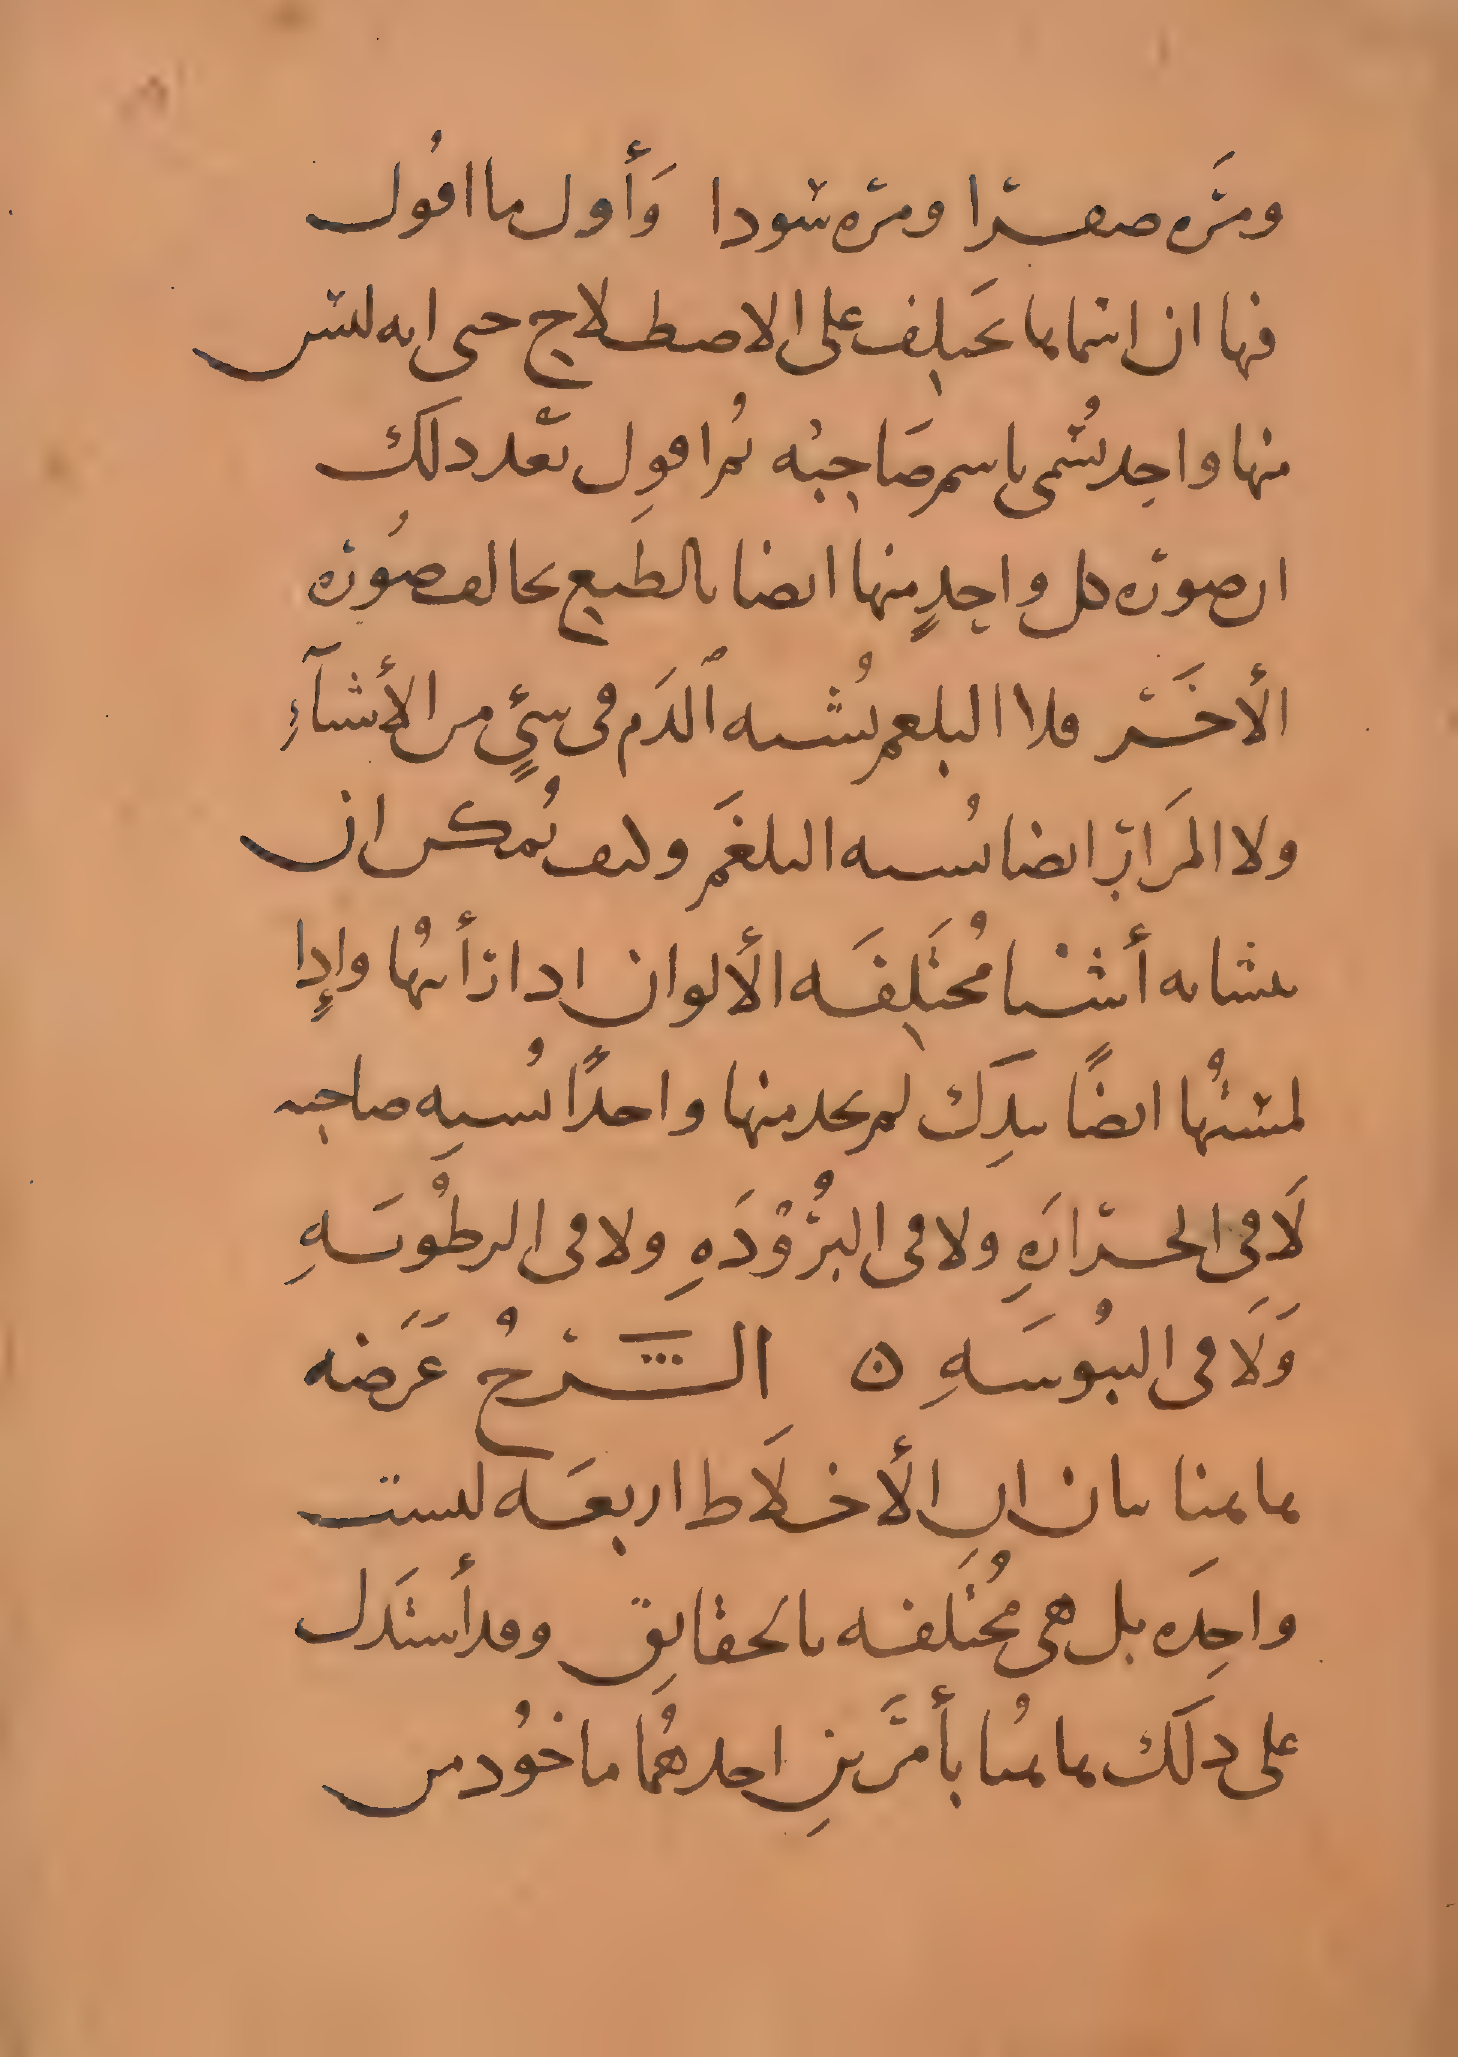 ومرّه صفرا ومرّه سودا وَأول ما اقُول
فيها ان اسماها تختلِف على الاصطلاح حتى انه ليس
منها واحِد يُسمى باسم صَاحبُه ثم اقول بَعد ذلك
ان صورة كل واحِدٍ منها ايضا بالطَبع تخالف صُورة
الأخَر فلا البلغم يُشبه ٱلدَم فى شئٍ من الأشيآءِ
ولا المَرار ايضا يُشبه البلغَم وكيف يُمكن ان
يتشابه أشيا مُختَلِفَه الألوان اذا رَأيتُها وإذا
لمستُها ايضًا بيدِكَ لم تجد منها واحدًا يُشبِه صاحبه
لَا فِي الحرارَهِ ولا فى البُرُوْدَهِ ولا فى الرطُوبَهِ
وَلَا فى اليبُوسَهِ ن الشرحُ غَرَضه
هاهنا بيان ان الأخلَاط اربعَه ليست
واحِدَه بل هى مُختَلفه بالحقايق وقد أستَدل
على ذلَك هاهُنا بأمرَينِ احدهُما ماخُوذ من